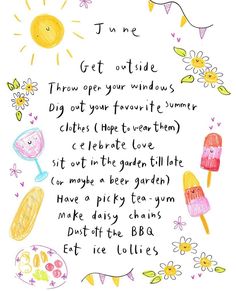 June
Get outside
Throw open your windows
Dig out your favourite summer
clothes (Hope to wear them)
celebrate love
sit out in the garden till late
(or maybe a beer garden)
Have a picky tea-yum
Make daisy chains
Dust off the BBQ
Eat ice lollies